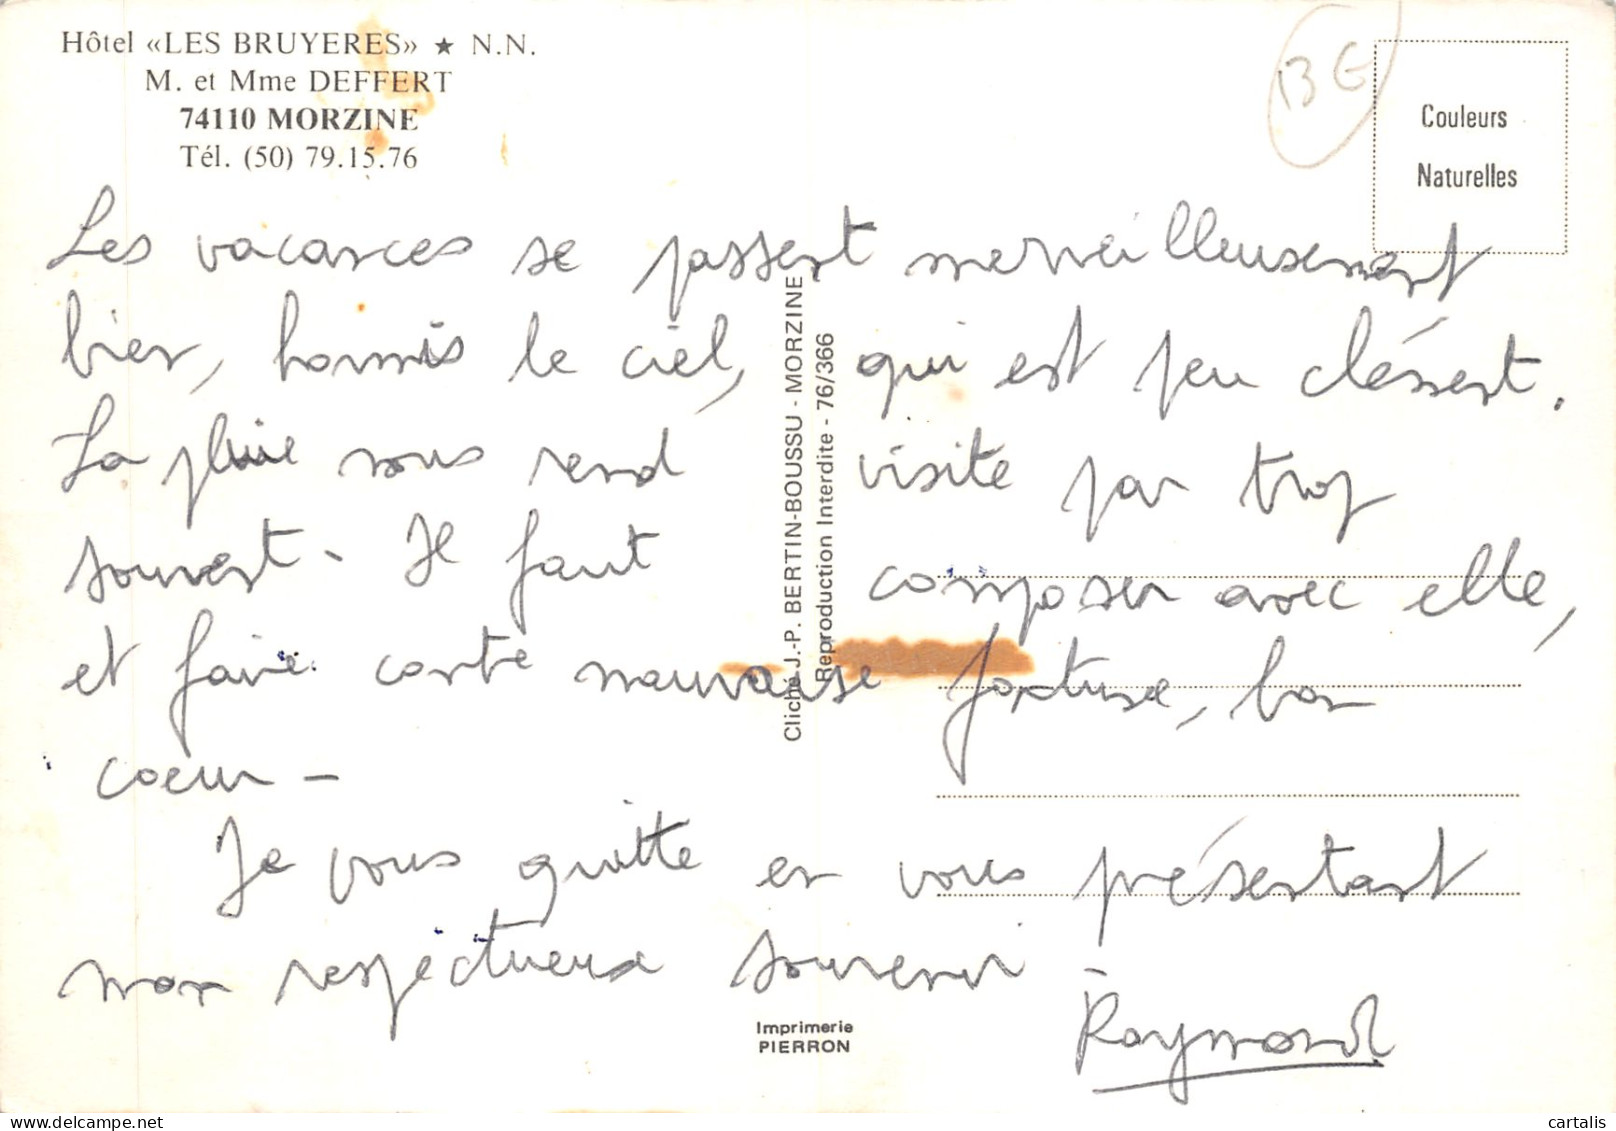 Hôtel «LES BRUYERES» ★ N.N.
M. et Mme DEFFERT
74110 MORZINE
Tél. (50) 79.15.76
BG
Couleurs
Naturelles
Les vacances se passent merveilleusement
bien, hormis le ciel, qui est peu clément.
La pluie nous rend visite par trop
souvent - Il faut composer avec elle,
et faire contre mauvaise fortune, bon
coeur -
Je vous quitte en vous présentant
mon respectueux souvenir -
Raymond
Cliché J.-P. BERTIN-BOUSSU - MORZINE
Reproduction Interdite - 76/366
Imprimerie
PIERRON
cartalis